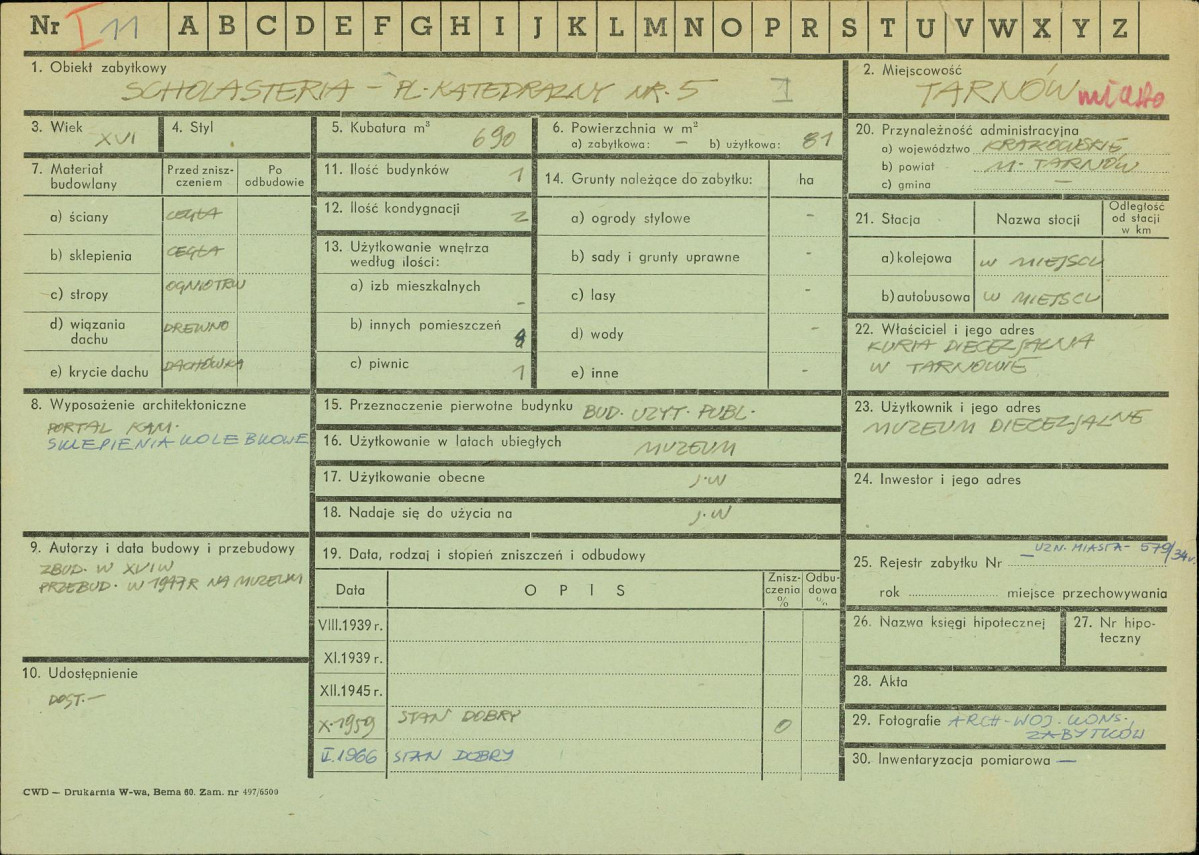 Nr I 11 A B C D E F G H I J K L M N O P R S T U V W X Y Z
1. Obiekt zabytkowy
SCHOLASTERIA – PL. KATEDRALNY NR. 5 I
2. Miejscowość
TARNÓW miasto
3. Wiek
XVI
4. Styl
5. Kubatura m³
690
6. Powierzchnia w m²
a) zabytkowa: – b) użytkowa: 81
20. Przynależność administracyjna
a) województwo KRAKOWSKIE
b) powiat M. TARNÓW
c) gmina –
7. Materiał budowlany
Przed zniszczeniem
Po odbudowie
a) ściany CEGŁA
b) sklepienia CEGŁA
c) stropy OGNIOTRW
d) wiązania dachu DREWNO
e) krycie dachu DACHÓWKA
11. Ilość budynków 1
12. Ilość kondygnacji 2
13. Użytkowanie wnętrza
według ilości:
a) izb mieszkalnych –
b) innych pomieszczeń 8
c) piwnic 1
14. Grunty należące do zabytku: ha
a) ogrody stylowe –
b) sady i grunty uprawne –
c) lasy –
d) wody –
e) inne –
21. Stacja Nazwa stacji
Odległość
od stacji
w km
a) kolejowa W MIEJSCU
b) autobusowa W MIEJSCU
22. Właściciel i jego adres
KURIA DIECEZJALNA
W TARNOWIE
8. Wyposażenie architektoniczne
PORTAL KAM.
SKLEPIENIA KOLEBKOWE
15. Przeznaczenie pierwotne budynku BUD. UZYT. PUBL.
16. Użytkowanie w latach ubiegłych MUZEUM
17. Użytkowanie obecne J.W
18. Nadaje się do użycia na J.W
23. Użytkownik i jego adres
MUZEUM DIECEZJALNE
24. Inwestor i jego adres
9. Autorzy i data budowy i przebudowy
ZBUD. W XVI W
PRZEBUD. W 1947 R NA MUZEUM
19. Data, rodzaj i stopień zniszczeń i odbudowy
Data
OPIS
Zniszczenia %
Odbudowa %
VIII.1939 r.
XI.1939 r.
XII.1945 r.
X.1959 STAN DOBRY 0
II.1966 STAN DOBRY
25. Rejestr zabytku Nr – UZN. MIASTA – 579/34
rok miejsce przechowywania
26. Nazwa księgi hipotecznej
27. Nr hipoteczny
28. Akta
29. Fotografie ARCH. WOJ. KONS.
ZABYTKÓW
30. Inwentaryzacja pomiarowa –
10. Udostępnienie
DOST. –
CWD — Drukarnia W-wa, Bema 60. Zam. nr 497/6500